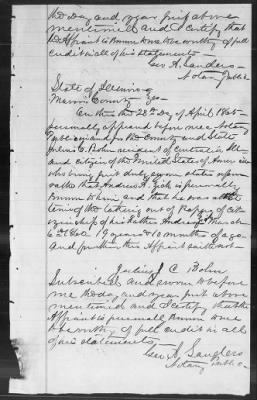 the day and year first above
mentioned and I certify that
the affiant is known to me to be worthy of full
credit in all of his statements
Geo A. Sanders
Notary Public
State of Illinois
Marion County
On this the 22nd Day of April 1865
personally appeared before me a Notary
Public in and for the County and State
C. Bohn resident of Centralia Ills
and citizen of the United States of America
who being first duly sworn states upon
oath that Andrew is personally
known to him and that he was at the
time of the taking out of Papers of Citi
zenship of his Father Andrew March
6th 19 years & 10 months of age
and further this affiant saith not
Julius C Bohn
Subscribed and sworn to before
me the day and year first above
mentioned and I certify that the
affiant is personally known to me
to be worthy of full credit in all
of his statements
Geo A Sanders
Notary Public